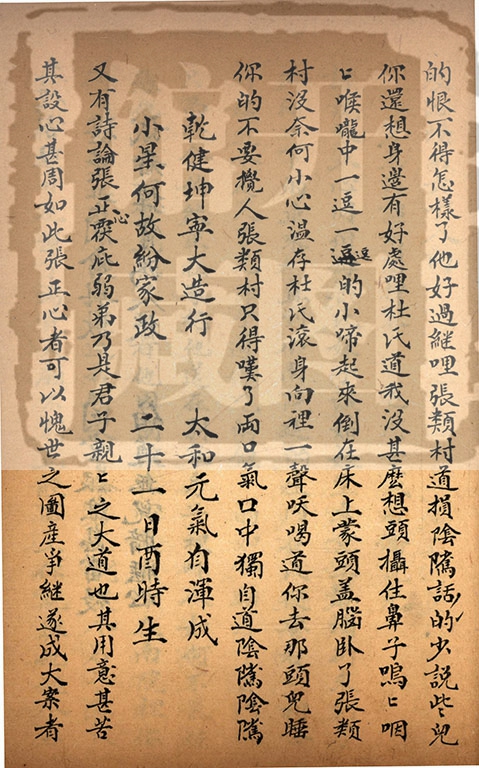 的恨不得怎樣了他好過継哩張類村道損陰隲話的少説些兒
你還想身邊有好處哩杜氏道我没甚麽想頭攝住鼻子嗚〻咽
〻喉嚨中一逗一逗的小啼起來倒在床上蒙頭盖腦卧了張類
村没奈何小心温存杜氏滚身向裡一聲吆喝道你去那頭兒睡
你的不要攪人張類村只得嘆了兩口氣口中獨自道陰隲陰隲
乾健坤寧大造行 太和元氣自渾成
小星何故紛家政 二十一日酉時生
又有詩論張正心覆庇弱弟乃是君子親〻之大道也其用意甚苦
其設心甚周如此張正心者可以愧世之圖産爭継遂成大案者